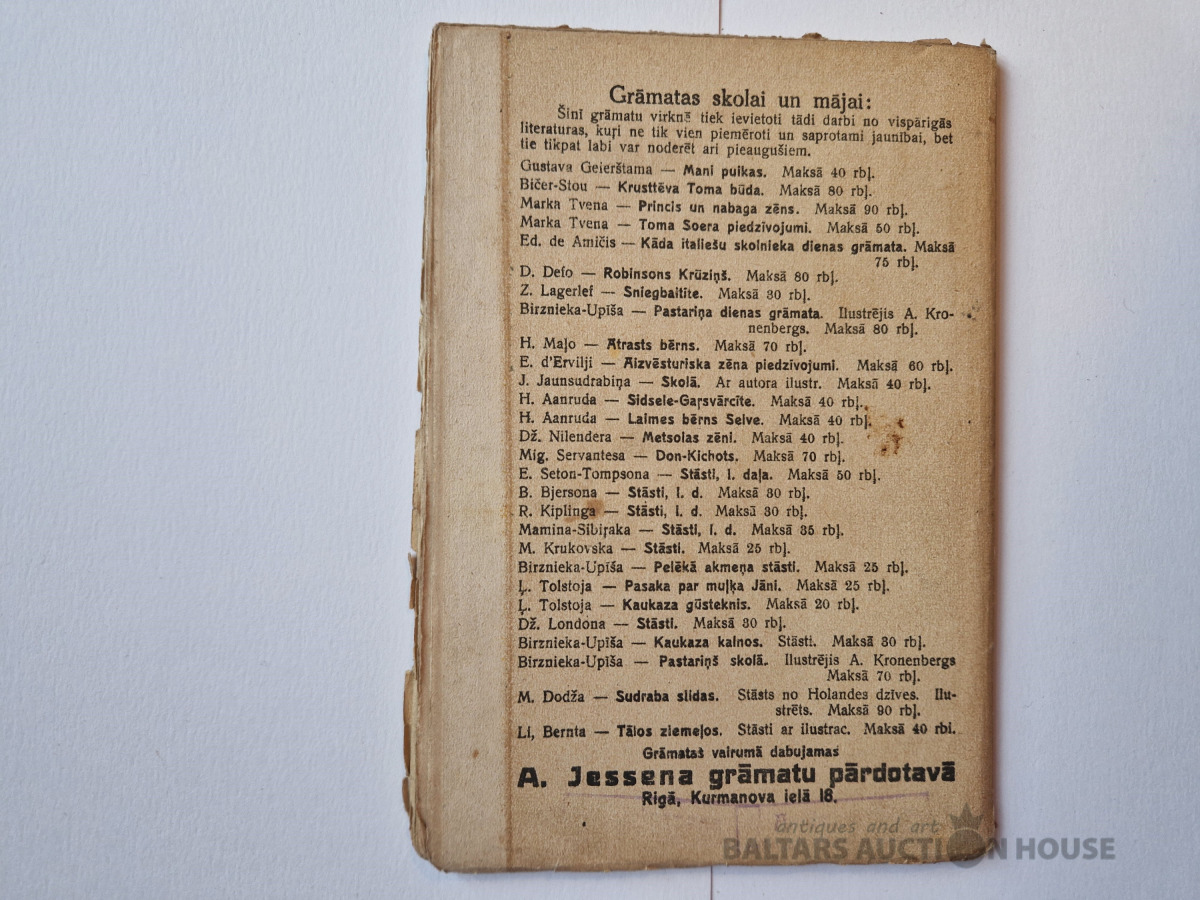 Grāmatas skolai un mājai:
Šinī grāmatu virknē tiek ievietoti tādi darbi no vispārīgās
literaturas, kuŗi ne tik vien piemēroti un saprotami jaunībai, bet
tie tikpat labi var noderēt ari pieaugušiem.
Gustava Geierštama — Mani puikas. Maksā 40 rbļ.
Bičer-Stou — Krusttēva Toma būda. Maksā 80 rbļ.
Marka Tvena — Princis un nabaga zēns. Maksā 90 rbļ.
Marka Tvena — Toma Soera piedzīvojumi. Maksā 50 rbļ.
Ed. de Amičis — Kāda italiešu skolnieka dienas grāmata. Maksā
75 rbļ.
D. Defo — Robinsons Krūziņš. Maksā 80 rbļ.
Z. Lagerlef — Sniegbaltīte. Maksā 30 rbļ.
Birznieka-Upīša — Pastariņa dienas grāmata. Ilustrējis A. Kro-
nenbergs. Maksā 80 rbļ.
H. Maļo — Atrasts bērns. Maksā 70 rbļ.
E. d'Ervilji — Aizvēsturiska zēna piedzīvojumi. Maksā 60 rbļ.
J. Jaunsudrabiņa — Skolā. Ar autora ilustr. Maksā 40 rbļ.
H. Aanruda — Sidsele-Gaŗsvārcīte. Maksā 40 rbļ.
H. Aanruda — Laimes bērns Selve. Maksā 40 rbļ.
Dž. Nilendera — Metsolas zēni. Maksā 40 rbļ.
Mig. Servantesa — Don-Kichots. Maksā 70 rbļ.
E. Seton-Tompsona — Stāsti, I. daļa. Maksā 50 rbļ.
B. Bjersona — Stāsti, I. d. Maksā 30 rbļ.
R. Kiplinga — Stāsti, I. d. Maksā 30 rbļ.
Mamina-Sibiŗaka — Stāsti, I. d. Maksā 35 rbļ.
M. Krukovska — Stāsti. Maksā 25 rbļ.
Birznieka-Upīša — Pelēkā akmeņa stāsti. Maksā 25 rbļ.
Ļ. Tolstoja — Pasaka par muļķa Jāni. Maksā 25 rbļ.
Ļ. Tolstoja — Kaukaza gūsteknis. Maksā 20 rbļ.
Dž. Londona — Stāsti. Maksā 30 rbļ.
Birznieka-Upīša — Kaukaza kalnos. Stāsti. Maksā 30 rbļ.
Birznieka-Upīša — Pastariņš skolā. Ilustrējis A. Kronenbergs
Maksā 70 rbļ.
M. Dodža — Sudraba slidas. Stāsts no Holandes dzīves. Ilu-
strēts. Maksā 90 rbļ.
Li, Bernta — Tālos ziemeļos. Stāsti ar ilustrac. Maksā 40 rbl.
Grāmatas vairumā dabujamas
A. Jessena grāmatu pārdotavā
Rigā, Kurmanova ielā 18.
antiques and art
BALTARS AUCTION HOUSE